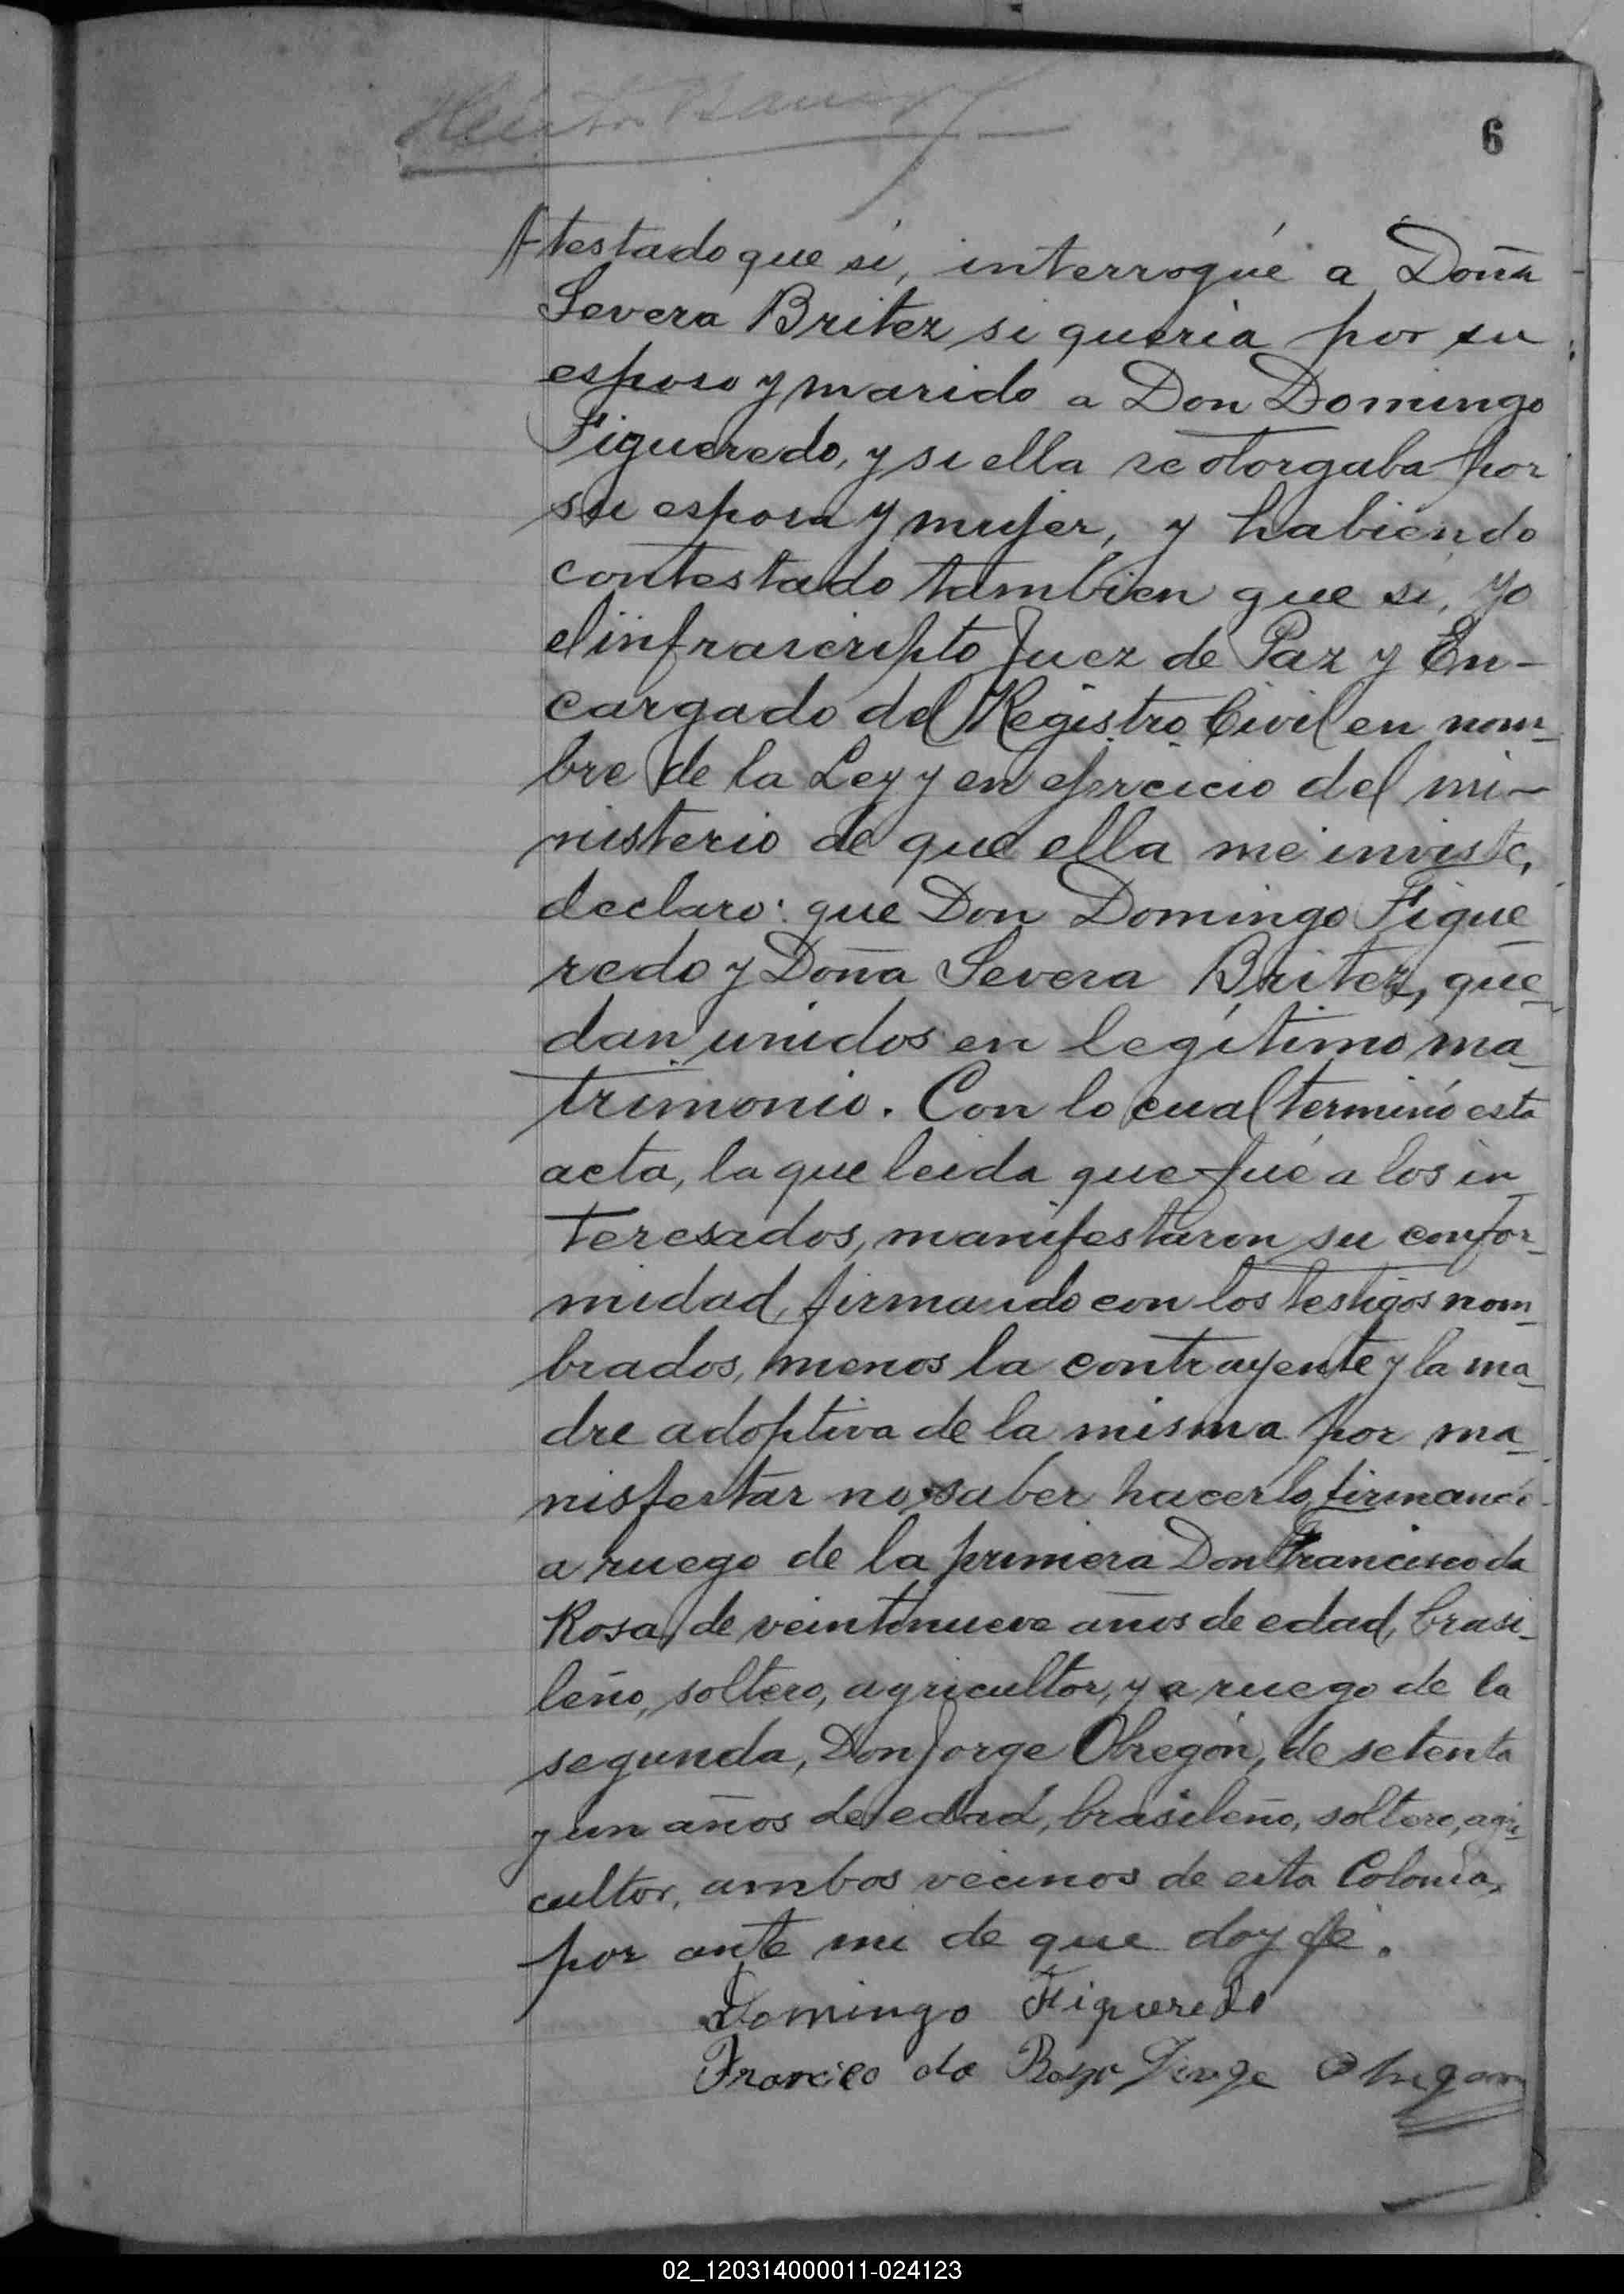 6
testado que si, interrogué a Doña
Severa Britez si queria por su
esposo y marido a Don Domingo
Figueredo, y si ella se otorgaba por
su esposa y mujer, y habiendo
contestado tambien que si, Yo
el infrascripto Juez de Paz y En-
cargado del Registro Civil en nom-
bre de la Ley y en ejercicio del mi-
nisterio de que ella me inviste,
declaro: que Don Domingo Figue
redo y Doña Severa Britez, que-
dan unidos en legítimo ma-
trimonio. Con lo cual terminó esta
acta, la que leida que fué a los in
teresados, manifestaron su confor-
midad, firmando con los testigos nom-
brados, menos la contrayente y la ma-
dre adoptiva de la misma por ma-
nisfestar no saber hacerlo, firmando
a ruego de la primera Don Francisco da
Rosa, de veintinueve años de edad, brasi-
leño, soltero, agricultor, y a ruego de la
segunda, Don Jorge Obregón, de setenta
y un años de edad, brasileño, soltero, agri-
cultor, ambos vecinos de esta Colonia,
por ante mi de que doy fé.
Domingo Figueredo
Francico da Rosa Jorge Obregon
02_120314000011-024123